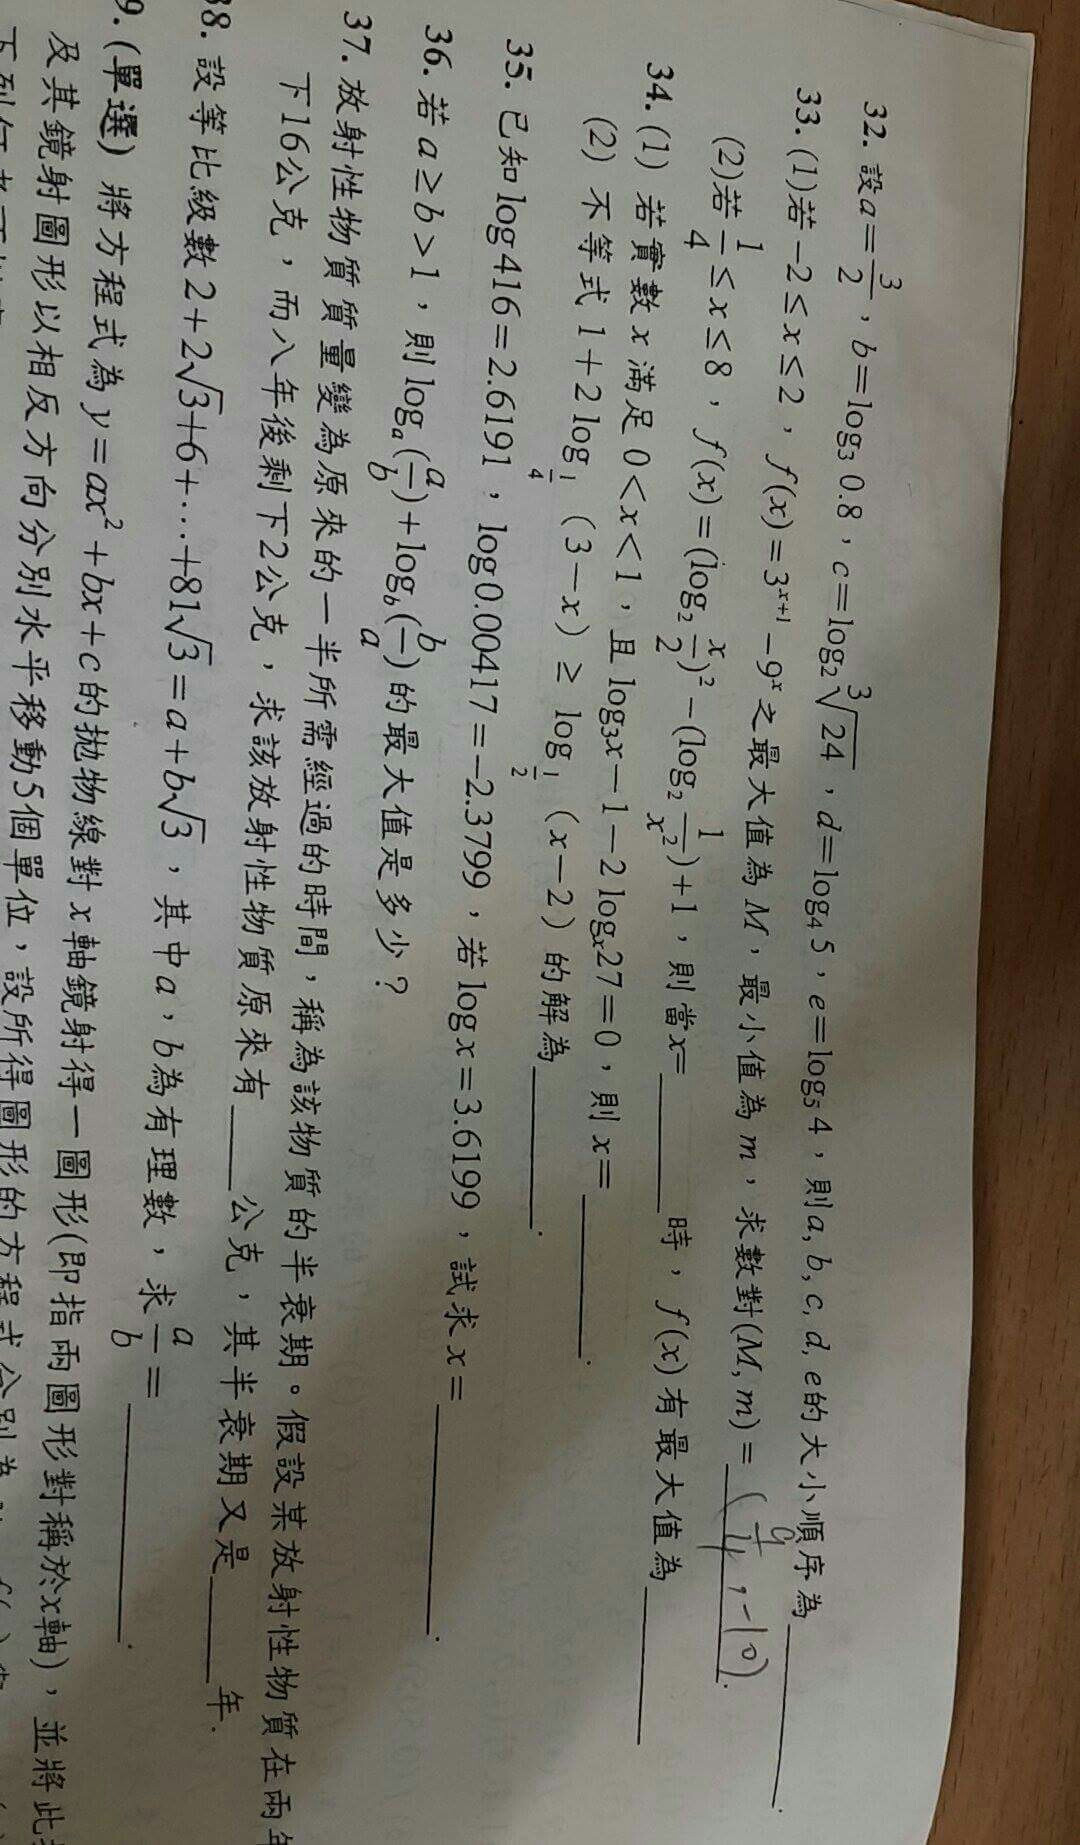 32. 設a=3/2，b=log₃0.8，c=log₂∛24，d=log₄5，e=log₅4，則a, b, c, d, e的大小順序為________.
33. (1)若−2≤x≤2，f(x)=3ˣ⁺¹−9ˣ之最大值為M，最小值為m，求數對(M, m)=(9/4，−10).
(2)若1/4≤x≤8，f(x)=(log₂ x/2)²−(log₂ 1/x²)+1，則當x=________時，f(x)有最大值為________
34. (1) 若實數x滿足0<x<1，且log₃x−1−2logₓ27=0，則x=________.
(2) 不等式1+2log_{1/4}(3−x)≥log_{1/2}(x−2)的解為________.
35. 已知log416=2.6191，log0.00417=−2.3799，若logx=3.6199，試求x=________.
36. 若a≥b>1，則logₐ(a/b)+log_b(b/a)的最大值是多少？
37. 放射性物質質量變為原來的一半所需經過的時間，稱為該物質的半衰期。假設某放射性物質在兩年
下16公克，而八年後剩下2公克，求該放射性物質原來有____公克，其半衰期又是____年.
38. 設等比級數2+2√3+6+…+81√3=a+b√3，其中a，b為有理數，求a/b=________.
9. (單選) 將方程式為y=ax²+bx+c的拋物線對x軸鏡射得一圖形(即指兩圖形對稱於x軸)，並將此
及其鏡射圖形以相反方向分別水平移動5個單位，設所得圖形的方程式分別為